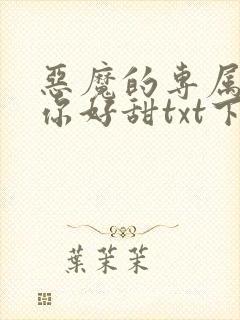 惡魔的专属
你好甜txt下
葉茉茉